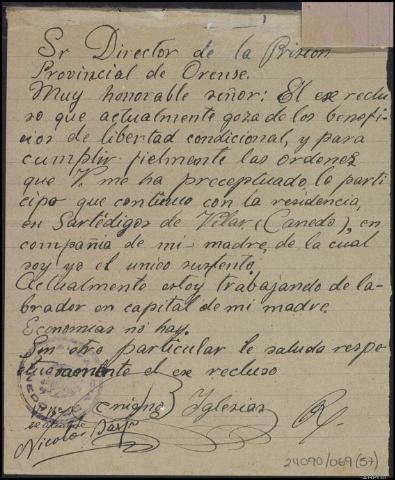 Sr Director de la Prision
Provincial de Orense.
Muy honorable señor: El ex reclu
so que actualmente goza de los benefi-
cios de libertad condicional, y para
cumplir fielmente las ordenes
que V. me ha preceptuado, le parti
cipo que continuo con la residencia,
en Sartédigos de Vilar (Canedo), en
compañia de mi madre, de la cual
soy yo el unico sustento.
Actualmente estoy trabajando de la-
brador en capital de mi madre.
Economias no hay.
Sin otro particular le saluda respe
tuosamente el ex recluso
Iglesias
Nicolas
24090/069 (57)